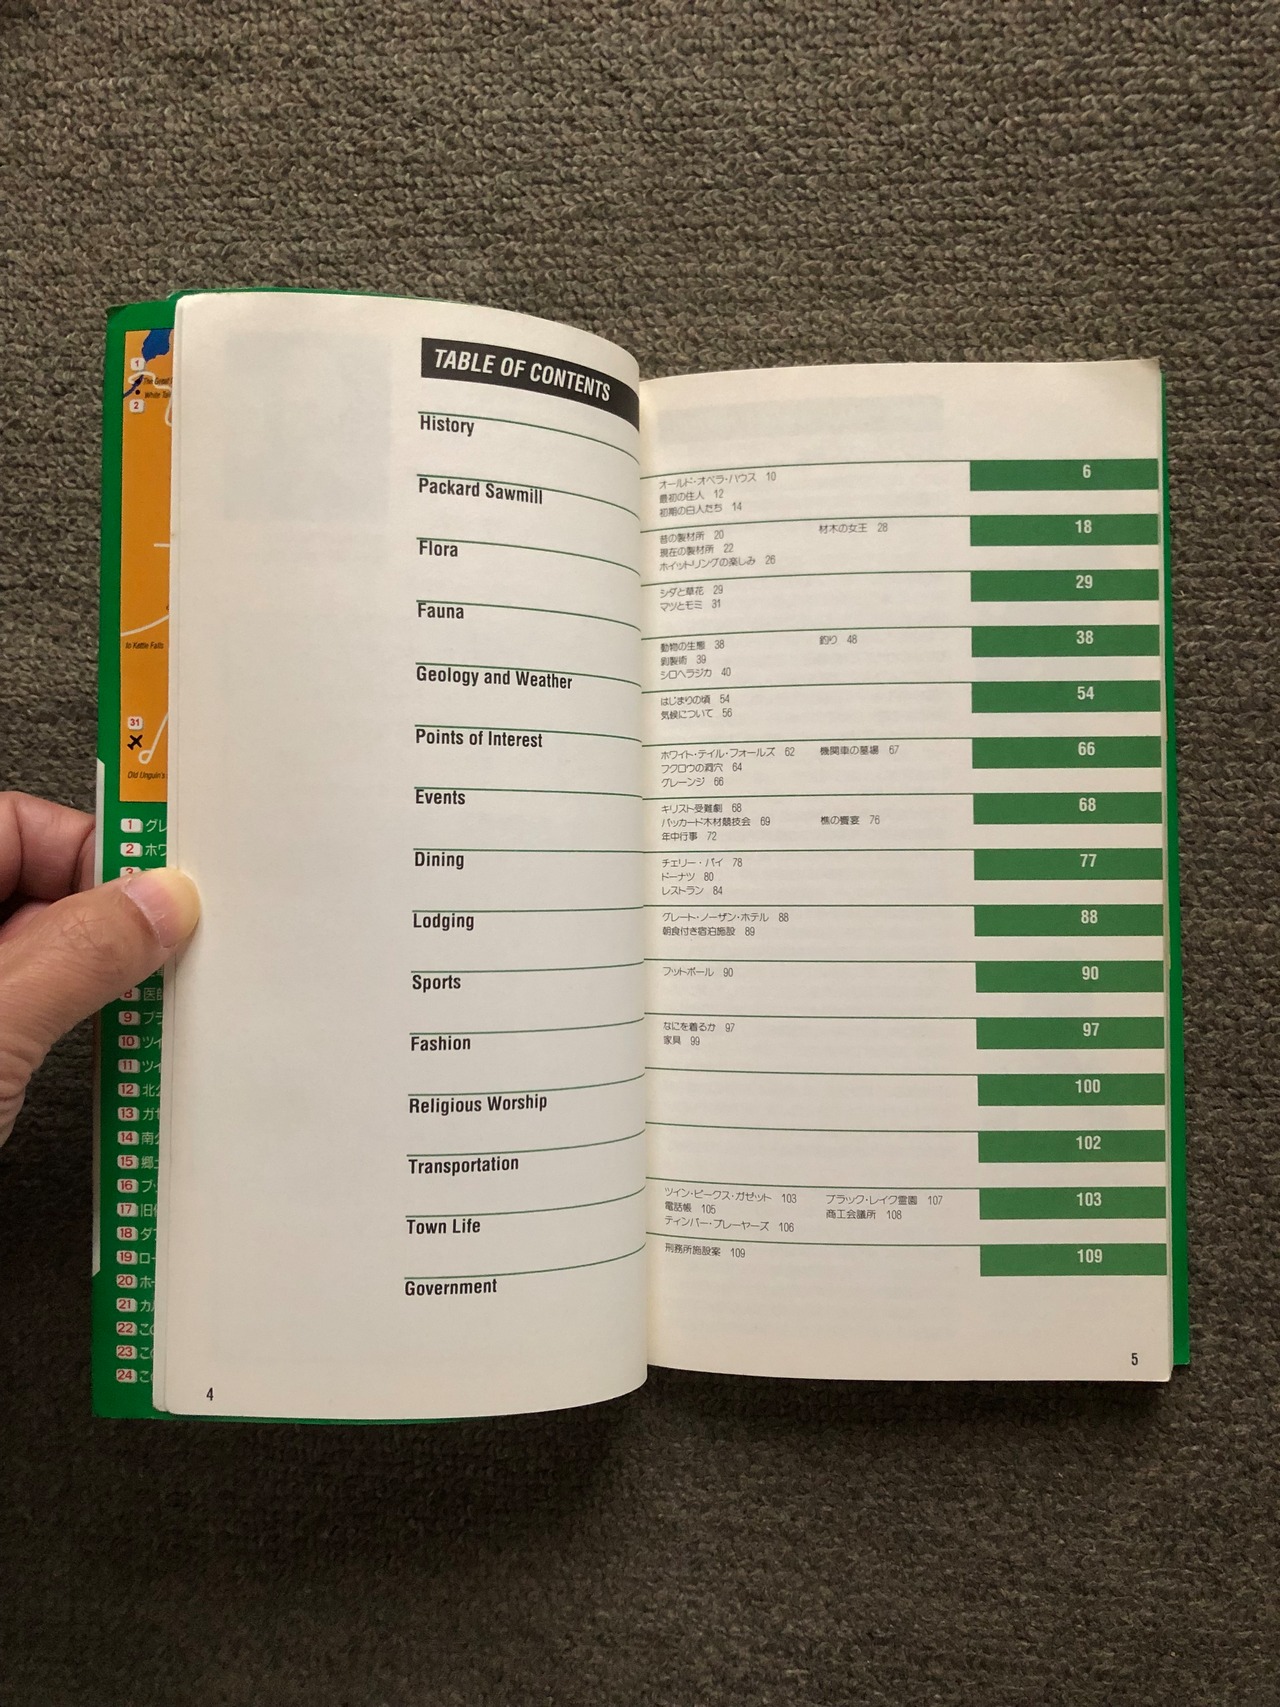 TABLE OF CONTENTS
History
Packard Sawmill
Flora
Fauna
Geology and Weather
Points of Interest
Events
Dining
Lodging
Sports
Fashion
Religious Worship
Transportation
Town Life
Government
4
オールド・オペラ・ハウス 10
最初の住人 12
初期の白人たち 14
6
昔の製材所 20 材木の女王 28
現在の製材所 22
ホイットリングの楽しみ 26
18
シダと草花 29
マツとモミ 31
29
動物の生態 38 釣り 48
剥製術 39
シロヘラジカ 40
38
はじまりの頃 54
気候について 56
54
ホワイト・テイル・フォールズ 62 機関車の墓場 67
フクロウの洞穴 64
グレーンジ 66
66
キリスト受難劇 68
パッカード木材競技会 69 樵の饗宴 76
年中行事 72
68
チェリー・パイ 78
ドーナツ 80
レストラン 84
77
グレート・ノーザン・ホテル 88
朝食付き宿泊施設 89
88
フットボール 90
90
なにを着るか 97
家具 99
97
100
102
ツイン・ピークス・ガゼット 103 ブラック・レイク霊園 107
電話帳 105 商工会議所 108
ティンバー・プレーヤーズ 106
103
刑務所施設案 109
109
5
1
2
to Kettle Falls
31
Old Unguin's
1 グレ
2 ホワ
3
8 医師
9 ブラ
10 ツイ
11 ツイ
12 北公
13 ガゼ
14 南公
15 郷土
16 ブッ
17 旧
18 ダブ
19 ロー
20 ホー
21 カル
22 この
23 この
24 この